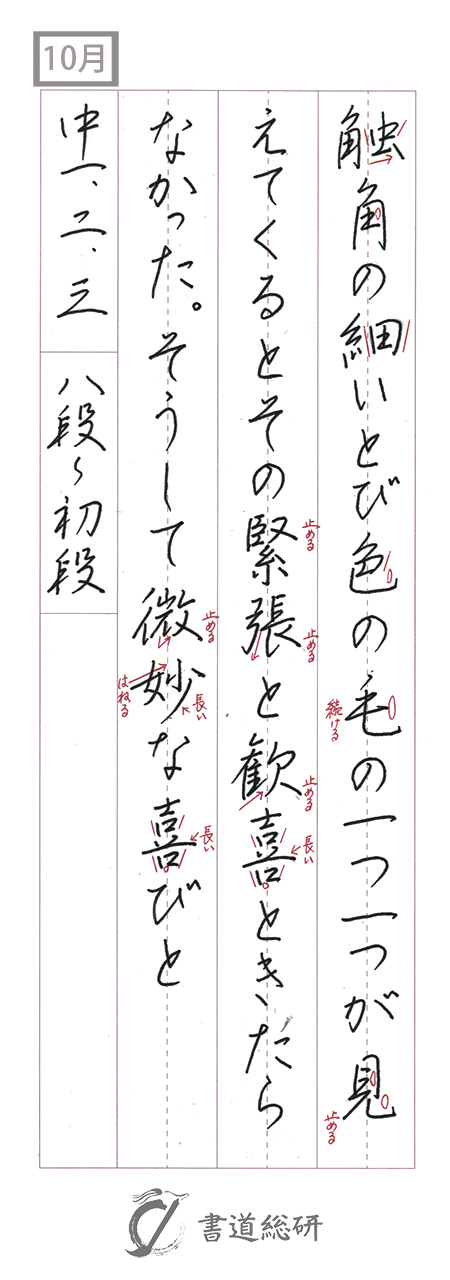 10月
触角の細いとび色の毛の一つ一つが見
えてくるとその緊張と歓喜ときたら
なかった。そうして微妙な喜びと
中一、二、三
八段〜初段
続ける
止める
止める
止める
止める
長い
止める
長い
はねる
書道総研